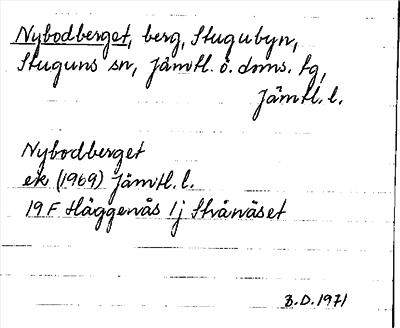 Nybodberget, berg, Stugubyn,
Stuguns sn, Jämtl. ö. doms. tg,
Jämtl. l.
Nybodberget
ek (1969) Jämtl. l.
19 F Häggenås 1j Strånäset
B.D. 1971